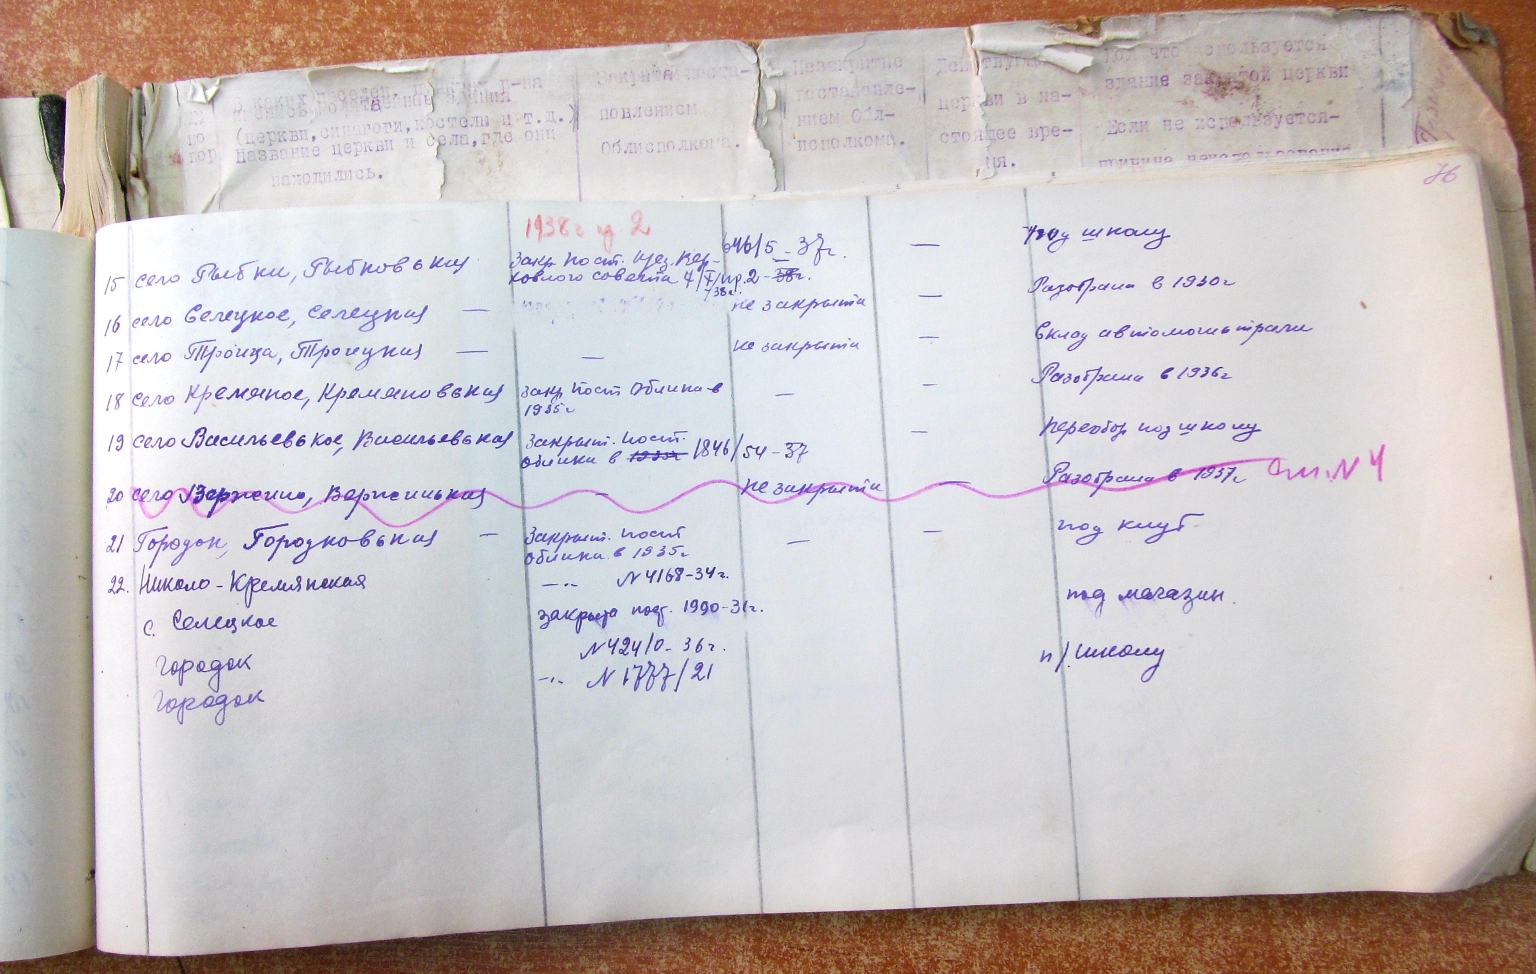 В каких населен. пунктах р-ния
имелись молитвенные здания
(церкви, синагоги, костелы и т.д.)
Название церкви и села, где они
находились.
Закрыта поста-
новлением
Облисполкома.
Незакрытые
постановле-
нием Обл-
исполкома.
Действующ.
церкви в на-
стоящее вре-
мя.
Под что используется
здание закрытой церкви
Если не используется-
причина неиспользования
76
1938г 2
15 село Рыбки, Рыбковская
Закр. пост. през. Вер-
ховного совета 4/I/пр.2-38г.
/38г.
646/5-37г. — под школу
16 село Селецкое, Селецкая — не закрыта — Разобрана в 1930г
17 село Троица, Троицкая — — не закрыта — склад автомагистрали
18 село Кремяное, Кремяновская закр пост Облика в
1935г — — Разобрана в 1936г
19 село Васильевское, Васильевская Закрыт. пост.
облика в 1935г 1846/54-37 — переобор под школу
20 село Вержино, Вержинская — не закрыта — Разобрана в 1937г См. N 4
21 Городок, Городковская — Закрыт. пост
облика в 1935г — — под клуб
22. Николо-Кремянская —..— N 4168-34г.
с. Селецкое закрыта пост. 1990-31г. под магазин.
городок N 424/0-36г.
городок —..— N 1777/21 п/школу